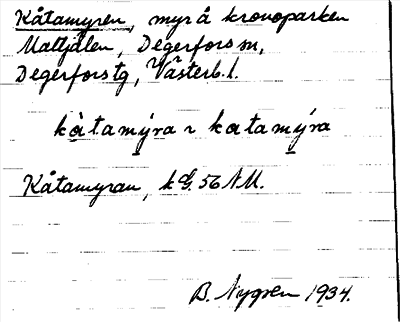 Kåtamyren, myr å kronoparken
Maltjälen, Degerfors sn,
Degerfors tg, Västerb. l.
kàtamýra ɿ katamýra
Kåtamyran, k G. 56 N M.
B. Nygren 1934.